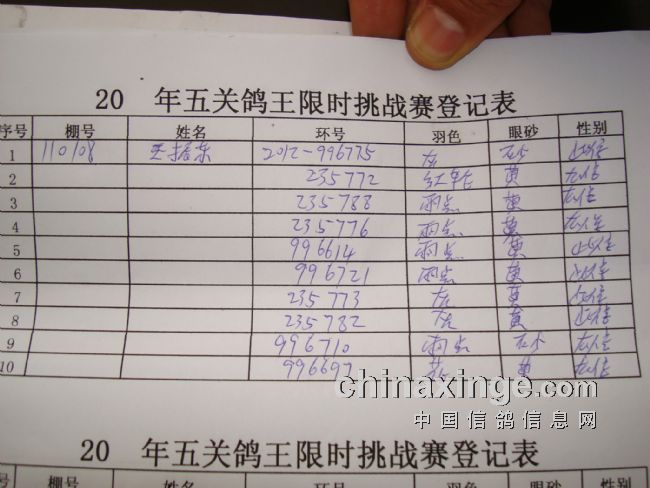 20 年五关鸽王限时挑战赛登记表
序号 棚号 姓名 环号 羽色 眼砂 性别
1 110108 王振东 2012-996775 灰 砂
2 235772 红轮 黄
3 235788 雨点 黄
4 235776 雨点 黄
5 996614 雨点 黄
6 996721 雨点 黄
7 235773 灰 黄
8 235782 灰 黄
9 996710 雨点 砂
10 996697 黄
chinaxinge.com
中国信鸽信息网
20 年五关鸽王限时挑战赛登记表
序号 棚号 姓名 环号 羽色 眼砂 性别